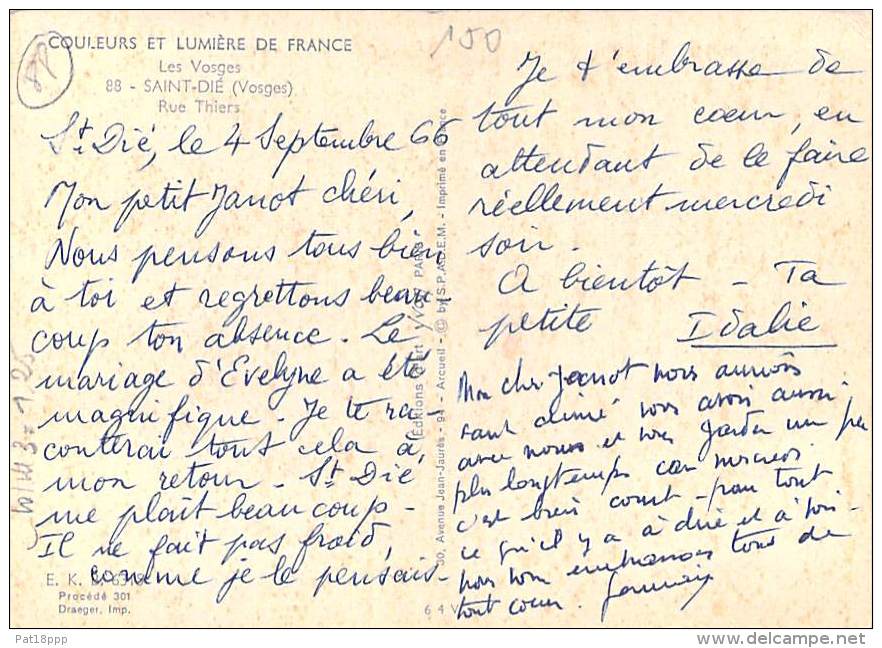 COULEURS ET LUMIÈRE DE FRANCE
Les Vosges
88 - SAINT-DIÉ (Vosges)
Rue Thiers
PP
150
St. Dié, le 4 Septembre 66
Mon petit Janot chéri,
Nous pensons tous bien
à toi et regrettons beau-
coup ton absence. Le
mariage d'Evelyne a été
magnifique. Je te ra-
conterai tout cela à
mon retour. St. Dié
me plaît beaucoup.
Il ne fait pas froid,
comme je le pensais.
E. K. B.
Procédé 301
Draeger, Imp.
Éditions d'art YVON, PARIS
30, Avenue Jean-Jaurès - 94 - Arcueil - © by S.P.A.D.E.M. - Imprimé en France
64 V
Je t'embrasse de
tout mon coeur, en
attendant de le faire
réellement mercredi
soir.
A bientôt - Ta
petite Idalie
Mon cher Jeanot nous aurions
tant aimé vous avoir aussi
avec nous et vous garder un peu
plus longtemps car mercredi
c'est bien court - pour tout
ce qu'il y a à dire et à voir.
nous vous embrassons tous de
tout coeur.
Pat18ppp
© delcampe.net